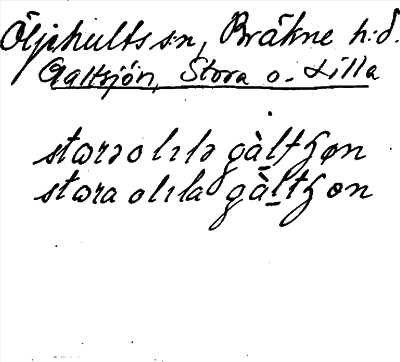 Öljehults sn, Bräkne h:d.
Galtsjön, Stora o. Lilla
starəolılə gàḻtʖøn
staraolıla gàḻtʖon